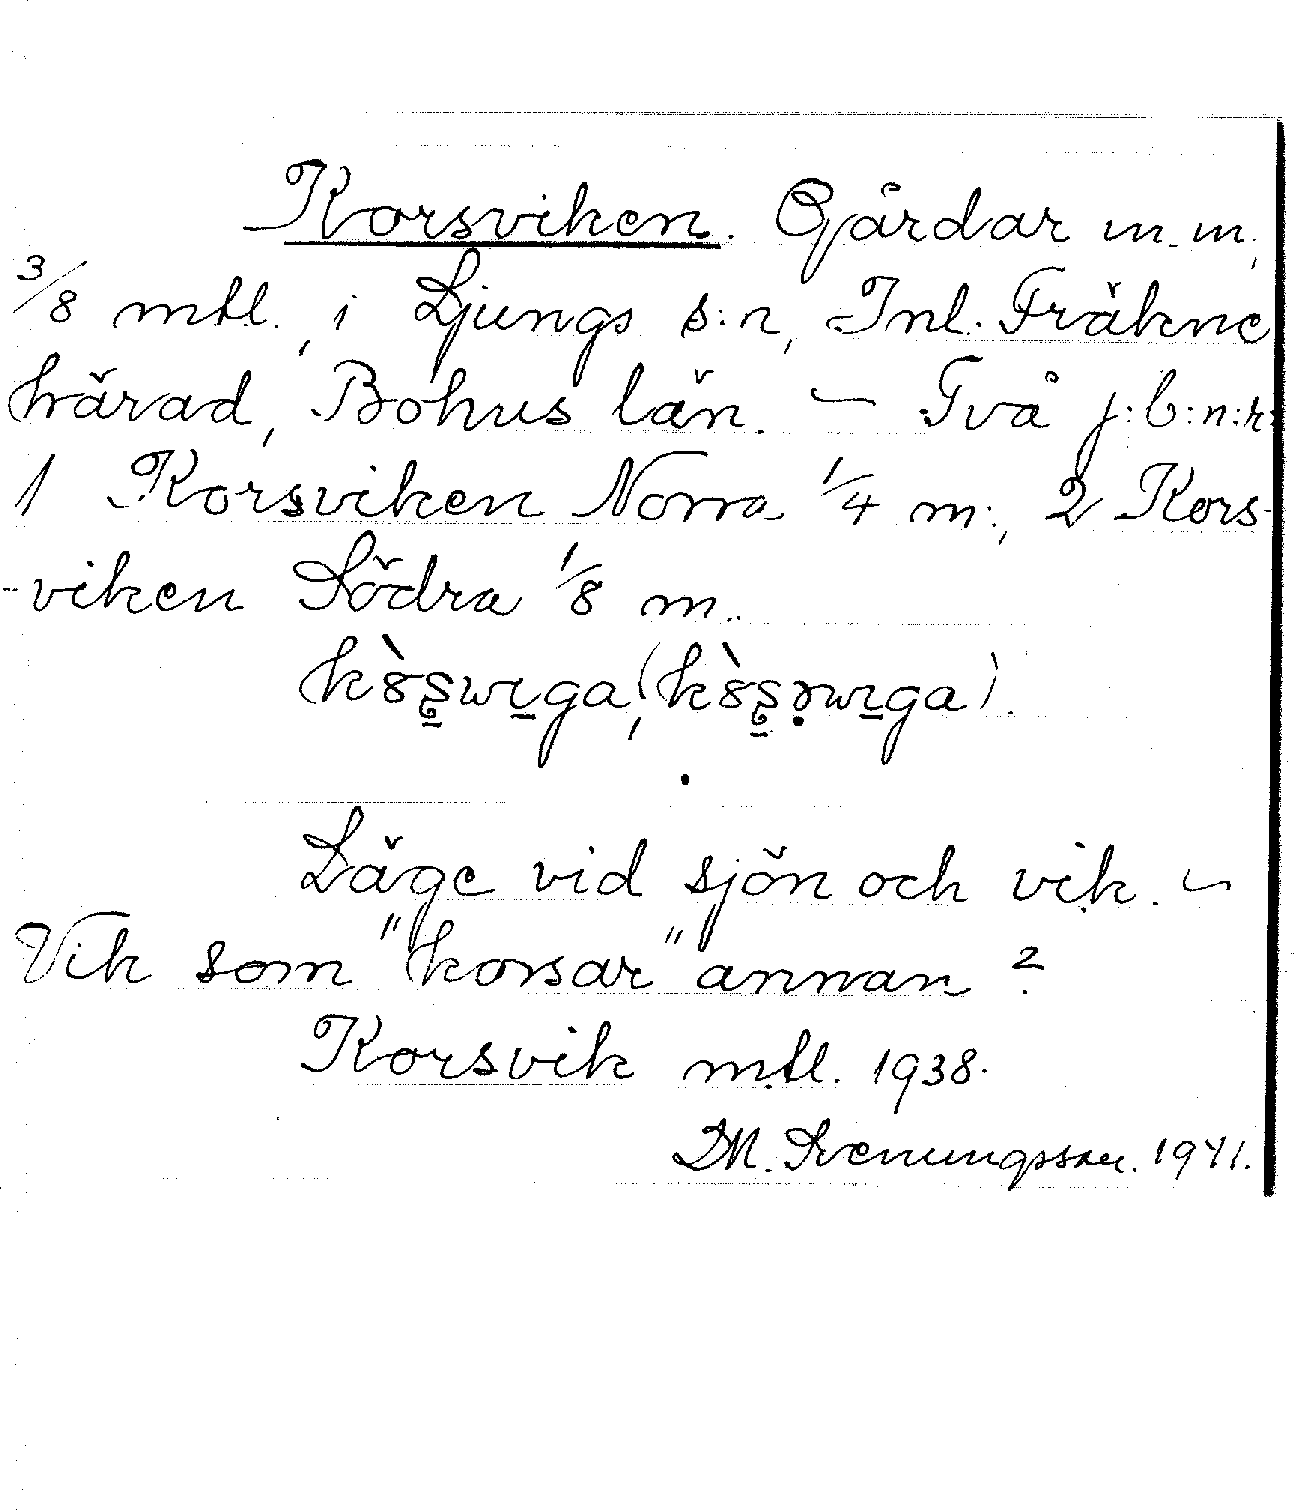 Korsviken. Gårdar m.m,
3/8 mtl., i Ljungs s:n, Inl. Fräkne
härad, Bohus län. — Två j:b:n:r:
1 Korsviken Norra 1/4 m:, 2 Kors-
-viken Södra 1/8 m.
Läge vid sjön och vik. —
Vik som "korsar" annan?
Korsvik mtl. 1938.
D.M. Svenungsson. 1941.